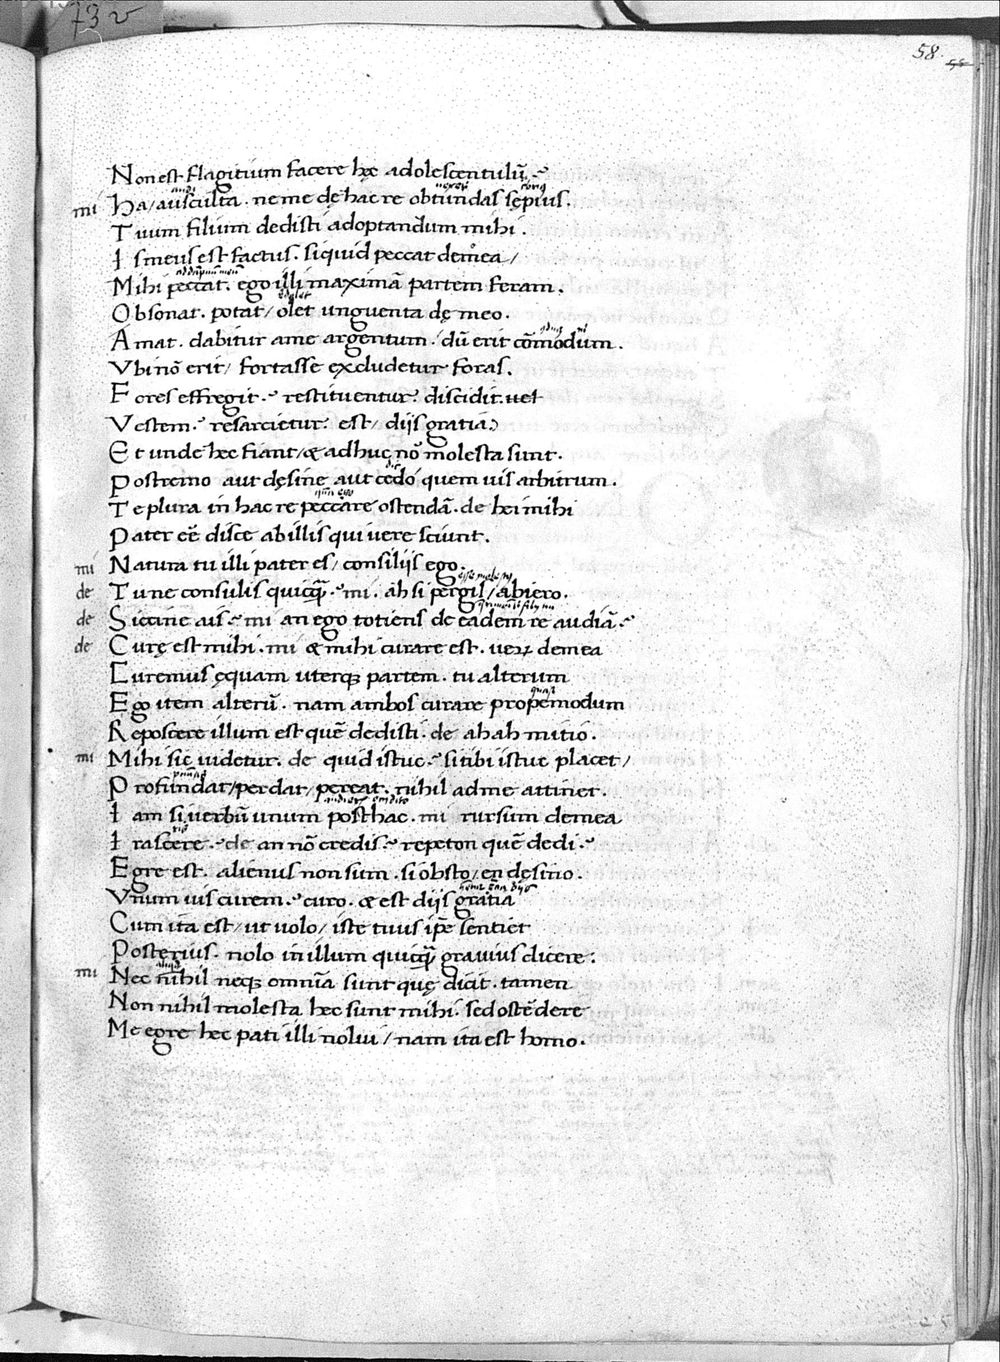 73 v
58
Non est flagitium facere hęc adolescentulū.
mi Ha/ ausculta. ne me dę hac re obtundas sępius.
Tuum filium dedisti adoptandum mihi.
Is meus est factus. siquid peccat demea/
Mihi peccat. ego illi maximā partem feram.
Obsonat. potat/ olet unguenta dę meo.
Amat. dabitur ame argentum. dū erit cōmodum.
Vbi nō erit/ fortasse excludetur foras.
Fores effregit. restituentur. discidit. uel
Vestem. resarcietur. est/ diis gratia
Et unde hec fiant/ & adhuc nō molesta sunt.
Postremo aut dęsine aut cedo quem uis arbitrum.
Te plura in hac re peccare ostendā. de hei mihi
Pater eē disce ab illis qui uere sciunt.
mi Natura tu illi pater es/ consiliis ego.
de Tu ne consulis quicquā. mi. ah si pergis/ abiero.
de Siccine ais. mi an ego totiens de eadem re audiā.
de Curę est mihi. mi & mihi curare est. uerū demea
Curemus ęquam uterque partem. tu alterum
Ego item alterū. nam ambos curare propemodum
Reposcere illum est quē dedisti. de ah ah mitio.
mi Mihi sic uidetur. de quid istuc. si tibi istuc placet/
Profundat/ perdat/ pereat. nihil ad me attinet.
Iam si uerbū unum posthac. mi rursum demea
Irascere. de an nō credis. repeton quē dedi.
Egre est. alienus non sum. si obsto/ en dęsino.
Vnum uis curem. curo. & est diis gratia
Cum ita est/ ut uolo/ iste tuus ipse sentiet
Posterius. nolo in illum quicquā grauius dicere.
mi Nec nihil neque omnia sunt quę dicit. tamen
Non nihil molesta hec sunt mihi. sed ostēdere
Me egre hec pati illi nolui/ nam ita est homo.